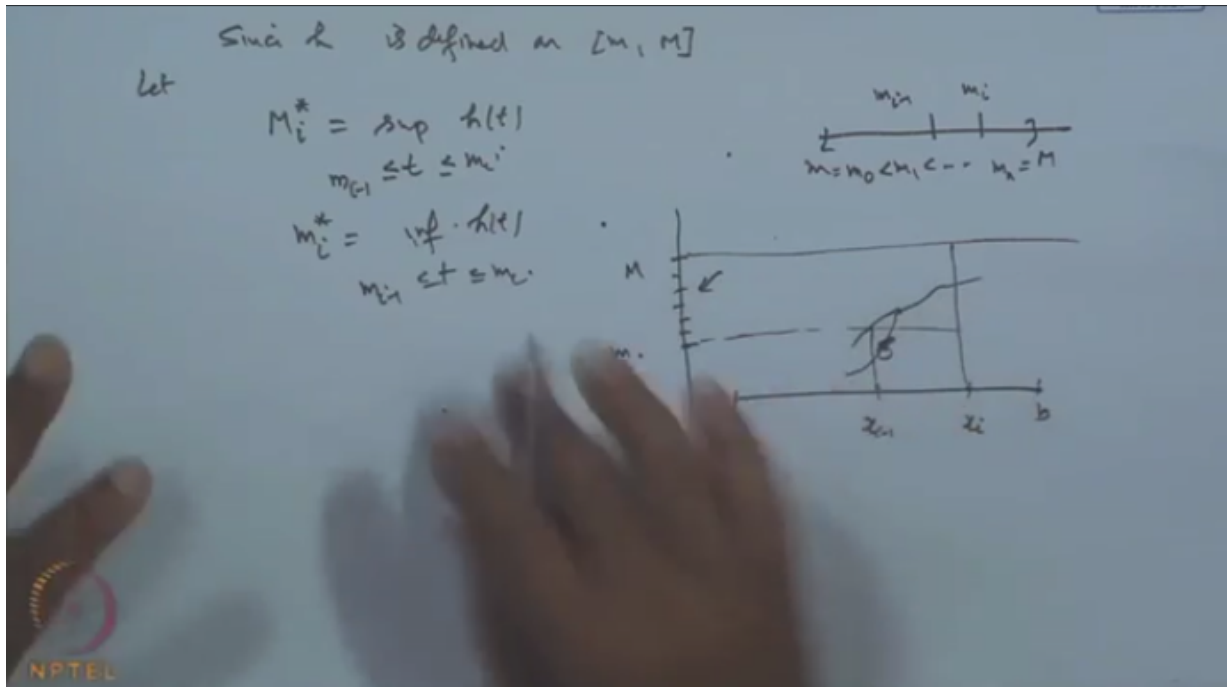 Since h is defined on [m, M]
Let
M_i^* = sup h(t)
m_{i-1} ≤ t ≤ m_i
m_i^* = inf h(t)
m_{i-1} ≤ t ≤ m_i
m_{i-1} m_i
m = m_0 < m_1 < -- m_n = M
M
m
x_{i-1} x_i b
NPTEL